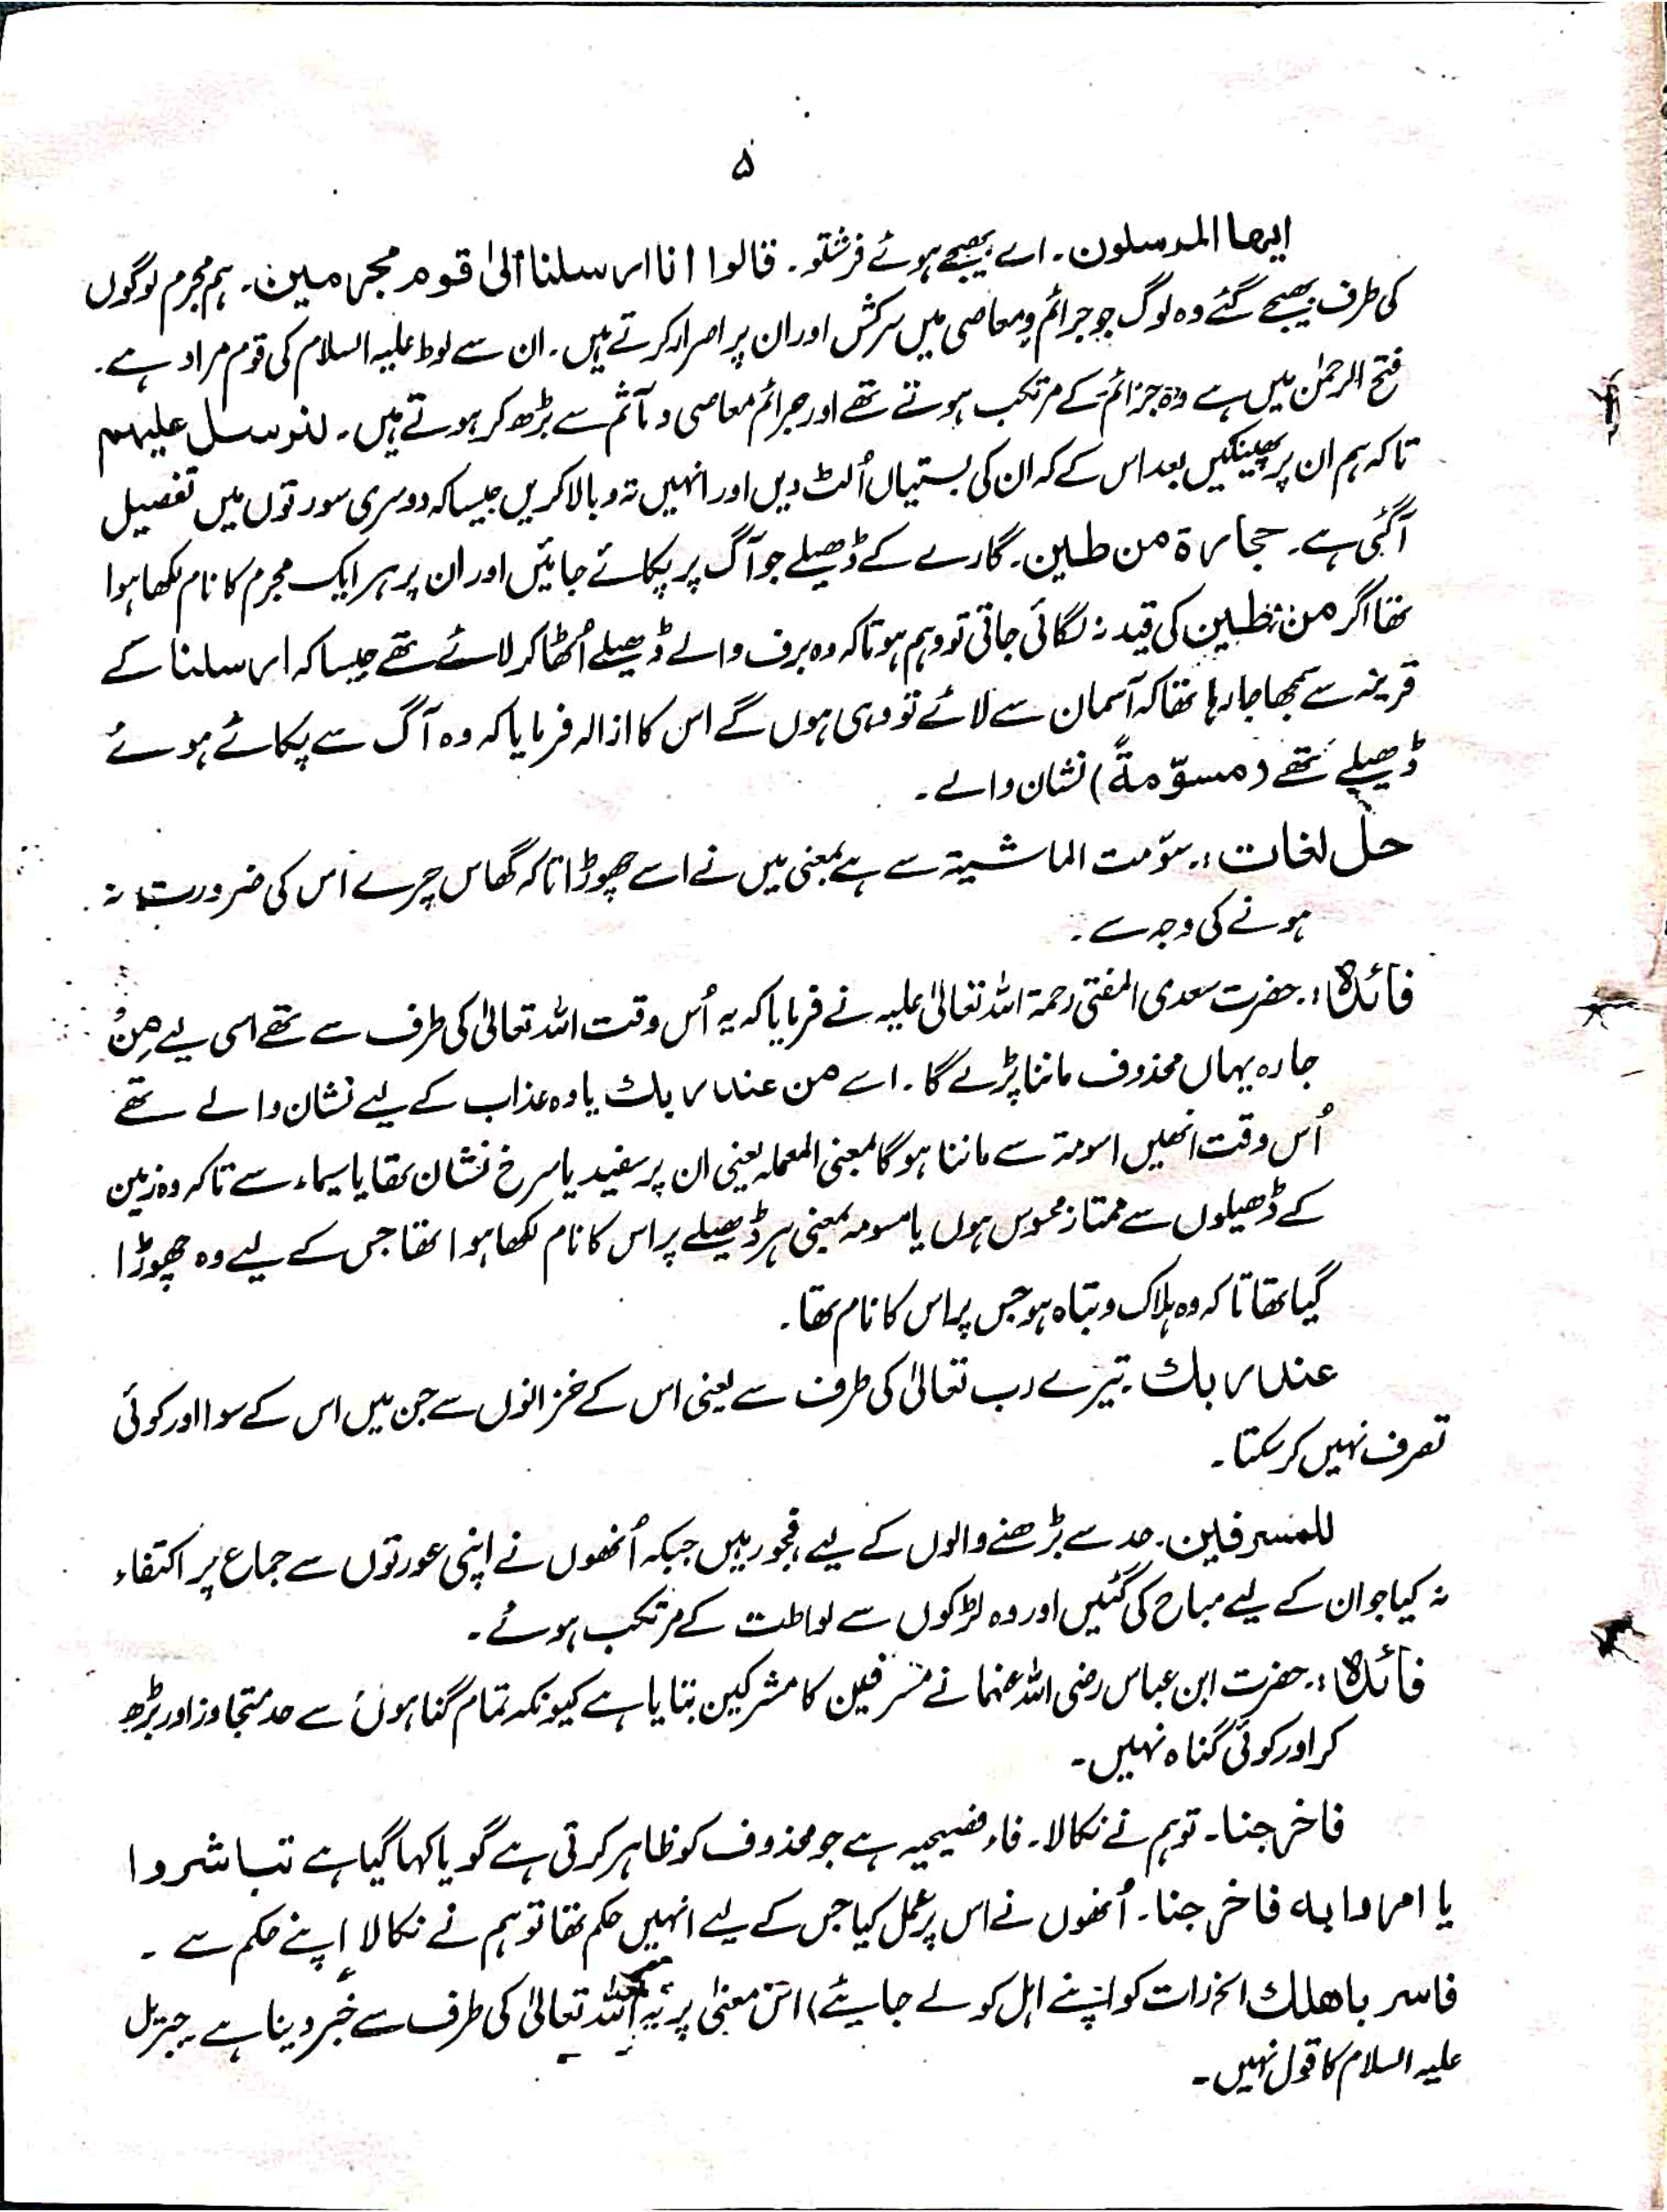 ۵
ایھا المرسلون۔ اے بھیجے ہوئے فرشتو۔ قالوا انا ارسلنا الیٰ قوم مجرمین۔ ہم مجرم لوگوں
کی طرف بھیجے گئے وہ لوگ جو جرائم و معاصی میں سرکش اور ان پر اصرار کرتے ہیں۔ ان سے لوط علیہ السلام کی قوم مراد ہے۔
فتح الرحمٰن میں ہے وہ جرائم کے مرتکب ہوتے تھے اور جرائم معاصی و مآثم سے بڑھ کر ہوتے ہیں۔ لنرسل علیہم
تاکہ ہم ان پر پھینکیں بعد اس کے کہ ان کی بستیاں اُلٹ دیں اور انہیں تہ و بالا کریں جیسا کہ دوسری سورتوں میں تفصیل
آگئی ہے۔ حجارۃ من طین۔ گارے کے ڈھیلے جو آگ پر پکائے جائیں اور ان پر ہر ایک مجرم کا نام لکھا ہوا
تھا اگر من طین کی قید نہ لگائی جاتی تو وہم ہوتا کہ وہ برف والے ڈھیلے اُٹھا کر لائے تھے جیسا کہ ارسلنا کے
قرینہ سے سمجھا جا رہا تھا کہ آسمان سے لائے تو وہی ہوں گے اس کا ازالہ فرمایا کہ وہ آگ سے پکائے ہوئے
ڈھیلے تھے (مسوّمۃً) نشان والے۔
حل لغات :۔ سوّمت الماشیۃ سے ہے بمعنی میں نے اسے چھوڑا تاکہ گھاس چرے اس کی ضرورت نہ
ہونے کی وجہ سے۔
فائدہ :۔ حضرت سعدی المفتی رحمۃ اللہ تعالیٰ علیہ نے فرمایا کہ یہ اُس وقت اللہ تعالیٰ کی طرف سے تھے اسی لیے مِنْ
جارہ یہاں محذوف ماننا پڑے گا۔ اے من عند ربك یا وہ عذاب کے لیے نشان والے تھے
اُس وقت انھیں اسومۃ سے ماننا ہوگا بمعنی المعملہ یعنی ان پر سفید یا سرخ نشان تھا یا سیماء سے تاکہ وہ زمین
کے ڈھیلوں سے ممتاز محسوس ہوں یا مسومہ بمعنی ہر ڈھیلے پر اس کا نام لکھا ہوا تھا جس کے لیے وہ چھوڑا
گیا تھا تاکہ وہ ہلاک و تباہ ہو جس پر اس کا نام تھا۔
عند ربك۔ تیرے رب تعالیٰ کی طرف سے یعنی اس کے خزانوں سے جن میں اس کے سوا اور کوئی
تصرف نہیں کر سکتا۔
للمسرفین۔ حد سے بڑھنے والوں کے لیے فجور میں جبکہ اُنھوں نے اپنی عورتوں سے جماع پر اکتفاء
نہ کیا جو ان کے لیے مباح کی گئیں اور وہ لڑکوں سے لواطت کے مرتکب ہوئے۔
فائدہ :۔ حضرت ابن عباس رضی اللہ عنہما نے مسرفین کا مشرکین بتایا ہے کیونکہ تمام گناہوں سے حد متجاوز اور بڑھ
کر اور کوئی گناہ نہیں۔
فاخرجنا۔ تو ہم نے نکالا۔ فاء فصیحیہ ہے جو محذوف کو ظاہر کرتی ہے گویا کہا گیا ہے تباشروا
یا امروا بہ فاخرجنا۔ اُنھوں نے اس پر عمل کیا جس کے لیے انہیں حکم تھا تو ہم نے نکالا اپنے حکم سے۔
فاسر باھلك الخ رات کو اپنے اہل کو لے جایئے) اس معنیٰ پر یہ اللہ تعالیٰ کی طرف سے خبر دینا ہے۔ جبریل
علیہ السلام کا قول نہیں۔